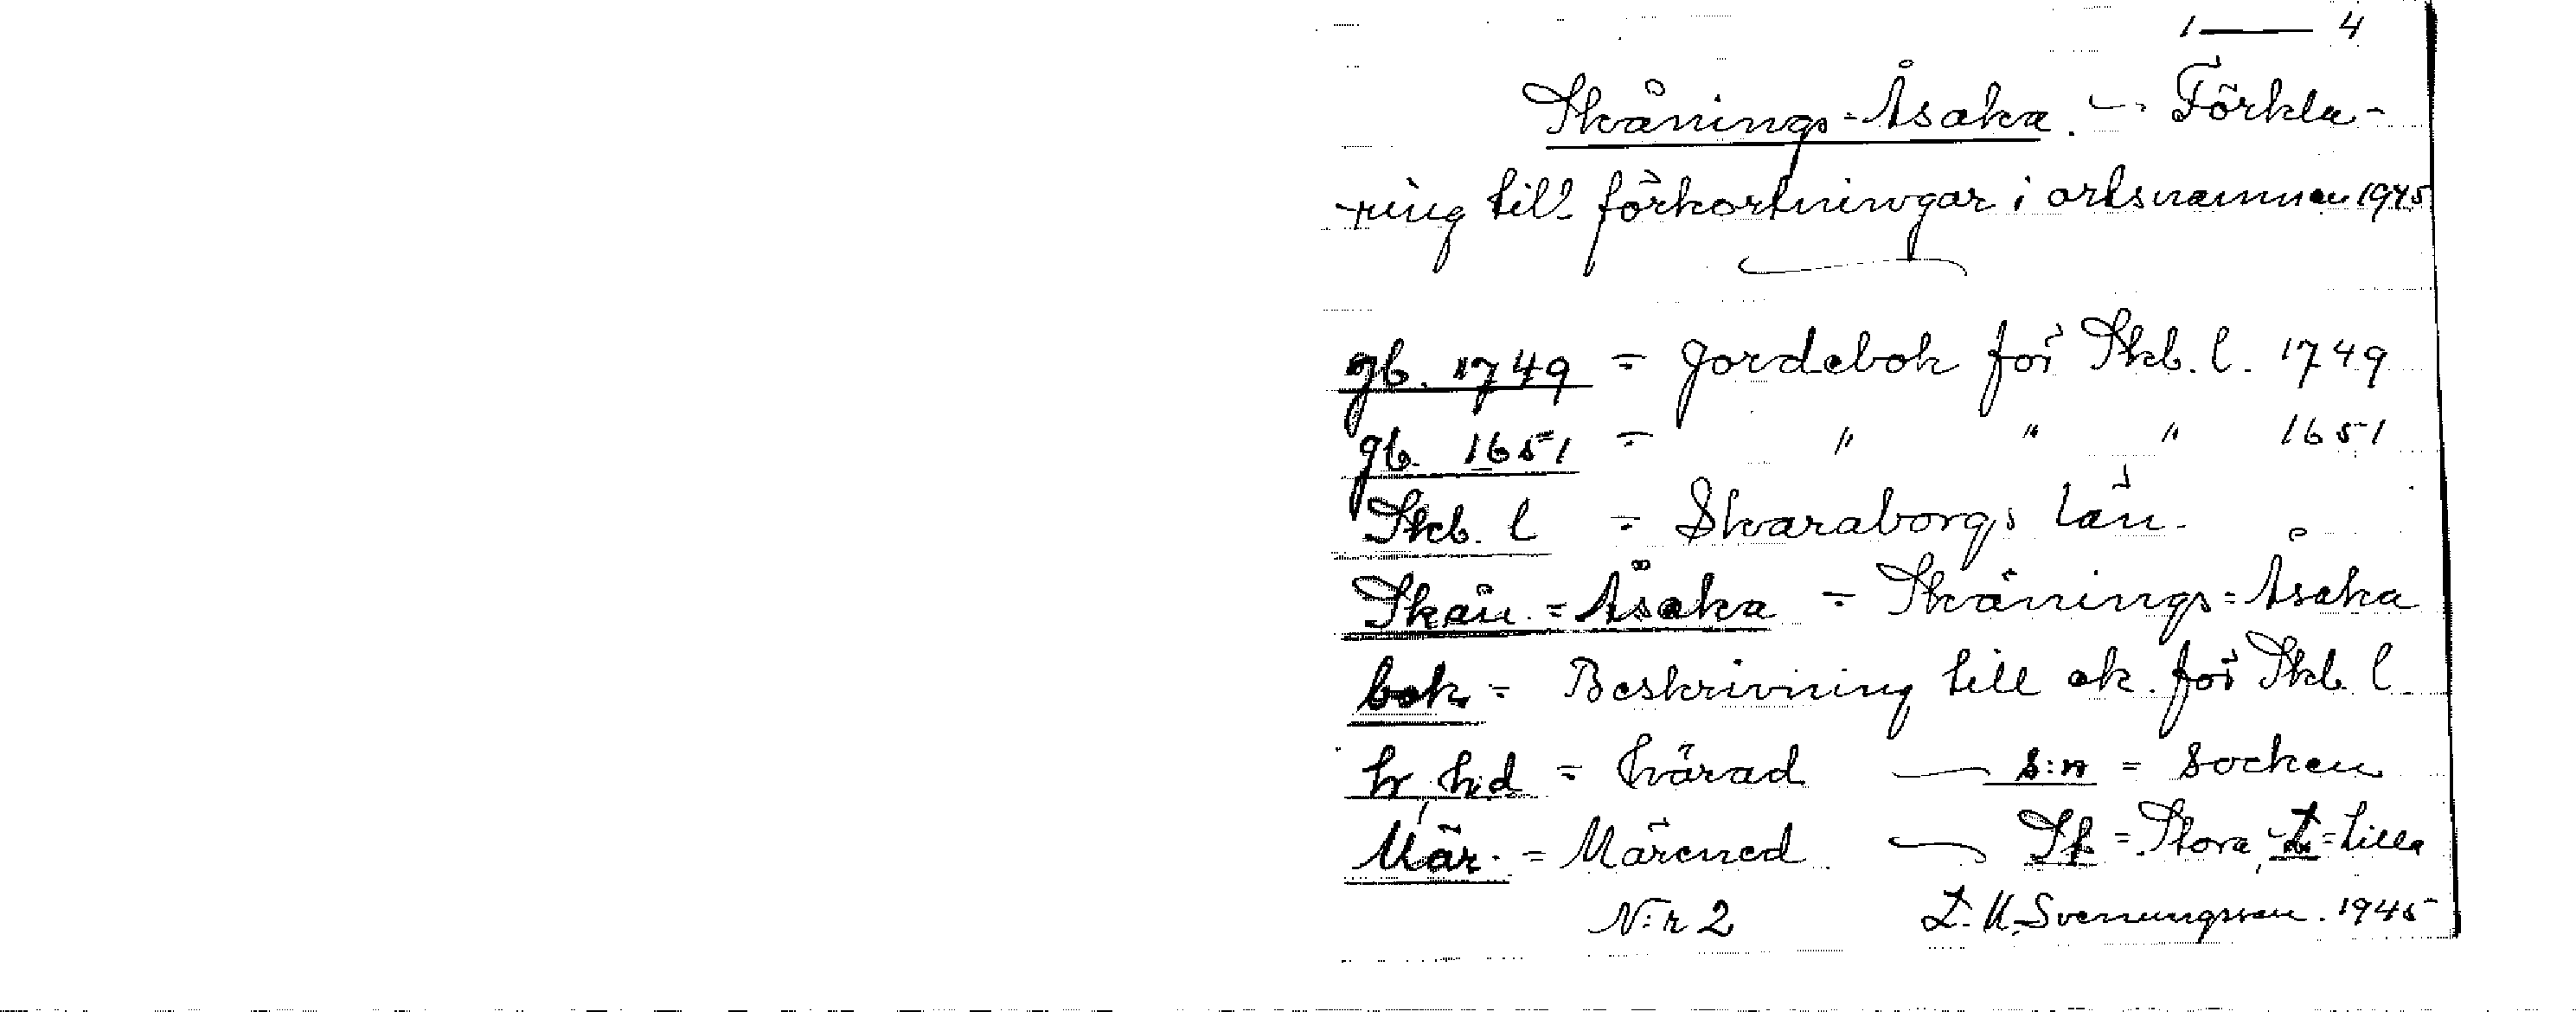 1 — 4
Skånings-Åsaka. — Förkla-
-ring till förkortningar i ortsnamnen 1945
jb. 1749 = Jordebok för Skb. l. 1749
jb. 1651 = " " " 1651
Skb. l = Skaraborgs län.
Skån.=Åsaka = Skånings=Åsaka
bek = Beskrivning till ek. för Skb. l
hr, h:d = härad — s:n = socken
Mär. = Märened — St = Stora, L = Lilla
N:r 2 L. U. Svenungsson. 1945